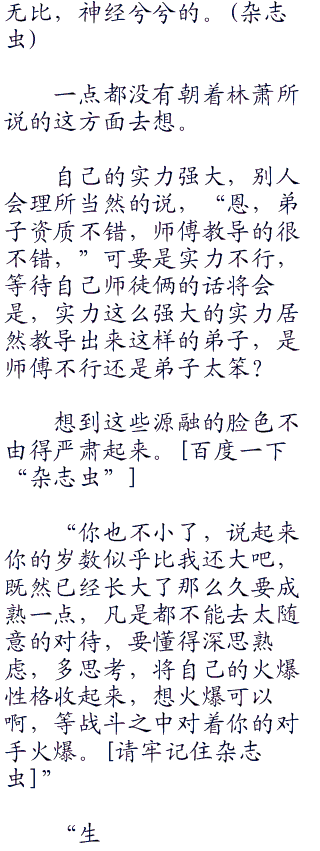 无比，神经兮兮的。(杂志
虫)
一点都没有朝着林萧所
说的这方面去想。
自己的实力强大，别人
会理所当然的说，“恩，弟
子资质不错，师傅教导的很
不错，”可要是实力不行，
等待自己师徒俩的话将会
是，实力这么强大的实力居
然教导出来这样的弟子，是
师傅不行还是弟子太笨？
想到这些源融的脸色不
由得严肃起来。[百度一下
“杂志虫”]
“你也不小了，说起来
你的岁数似乎比我还大吧，
既然已经长大了那么久要成
熟一点，凡是都不能去太随
意的对待，要懂得深思熟
虑，多思考，将自己的火爆
性格收起来，想火爆可以
啊，等战斗之中对着你的对
手火爆。[请牢记住杂志
虫]”
“生